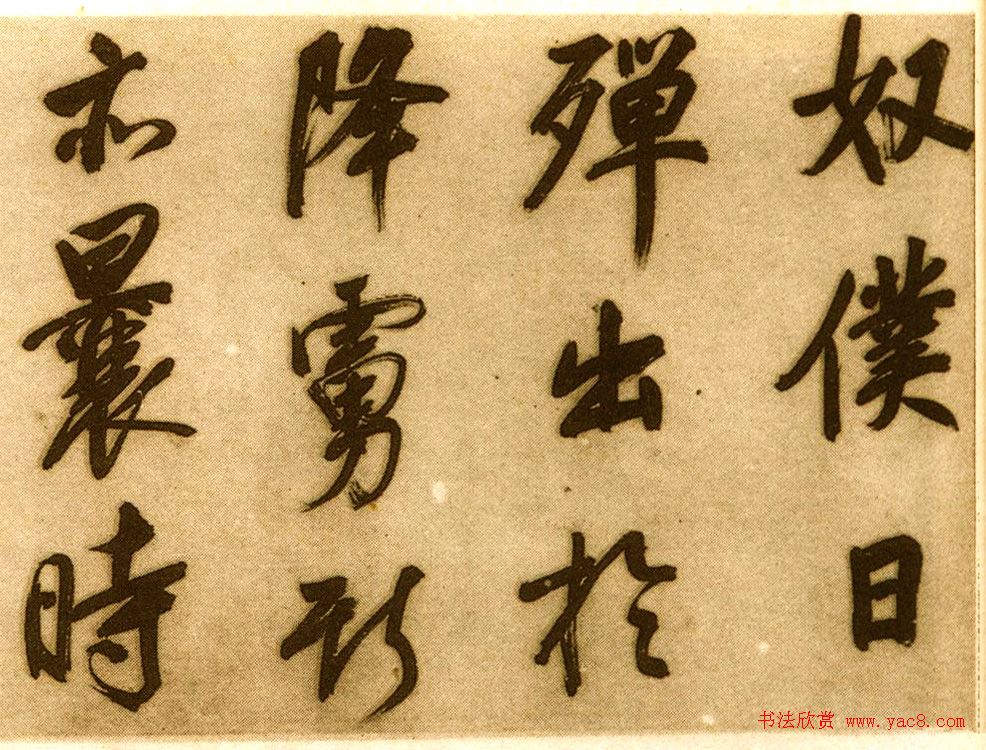 奴僕日
磾出於
降虜斯
亦曩時
书法欣赏 www.yac8.com